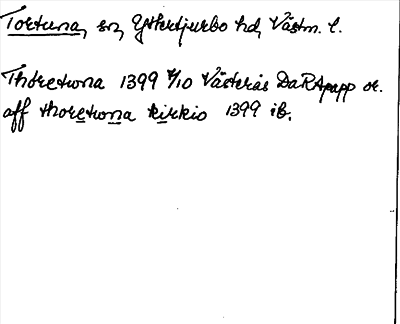 Tortuna, sn, Yttertjurbo hd, Västm. l.
Thoretwna 1399 4/10 Västerås DaRApapp or.
aff thoretwna kirkio 1399 ib.